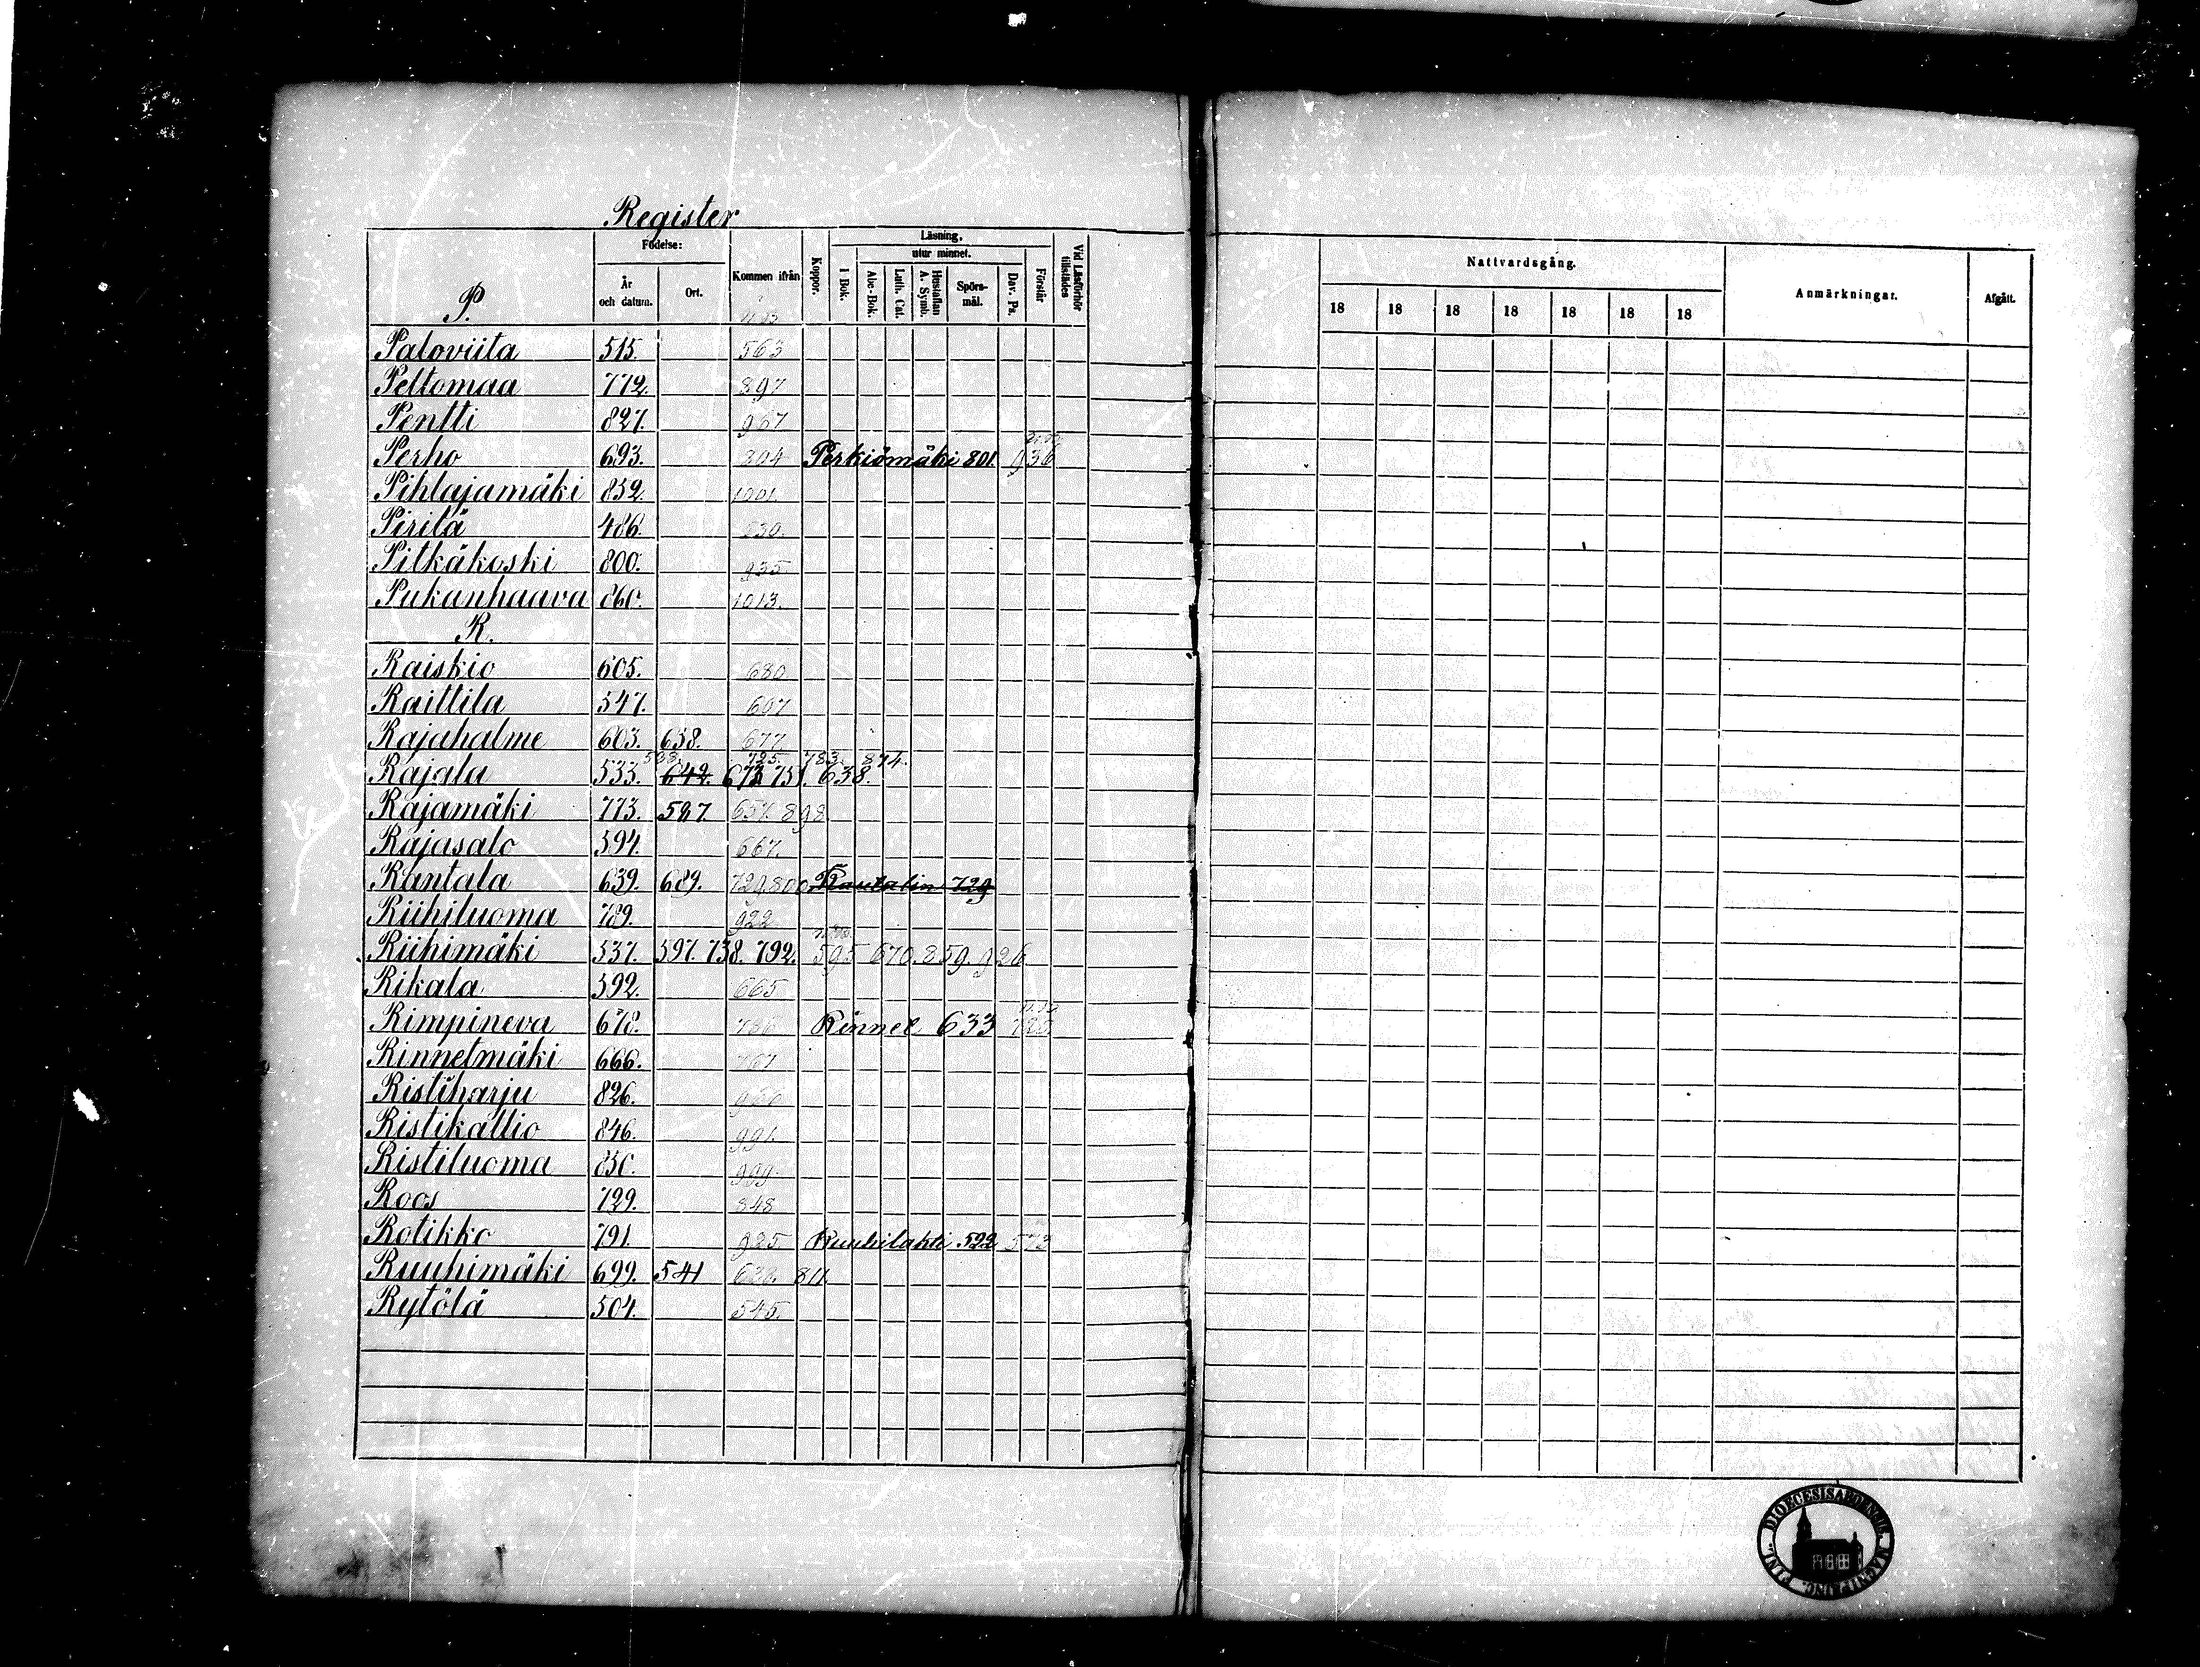 Register
Födelse:
Läsning.
utur minnet.
År och datum.
Ort.
Kommen ifrån
Koppor.
I Bok.
Abc-Bok.
Luth. Cat.
Hustaflan A. Symb.
Spörs-mål.
Dav. Ps.
Förstår
Vid Läsförhör tillstädes
Nattvardsgång.
Anmärkningar.
Afgått.
18 18 18 18 18 18 18
P.
Paloviita 515. 563
Peltomaa 772. 897
Pentti 827. 967
Perho 693. 804 Perkiömäki 801. 936
Pihlajamäki 852. 1001.
Pirilä 486. 530.
Pitkäkoski 800. 935.
Pukanhaava 860. 1013.
R.
Raiskio 605. 680
Raittila 547. 607
Rajahalme 603. 638. 677
725. 783. 874.
Rajala 533. 642. 673 751. 638.
Rajamäki 773. 587. 657. 898
Rajasalo 594. 667.
Rantala 639. 689. 729. 800. Rautalin 729
Riihiluoma 789. 922
Riihimäki 537. 597. 738. 792. 595 670. 859. 926
Rikala 592. 665
Rimpineva 678. 786 Rinnel 633
Rinnetmäki 666. 767
Ristiharju 826. 966
Ristikallio 846. 991.
Ristiluoma 850. 999.
Roos 729. 848
Rotikko 791. 925 Ruuhilahti 522 573
Ruuhimäki 699. 541 811.
Rytölä 504. 545.
DIOECESIS ABOENSIS. MAGNI PRINC. FINL.